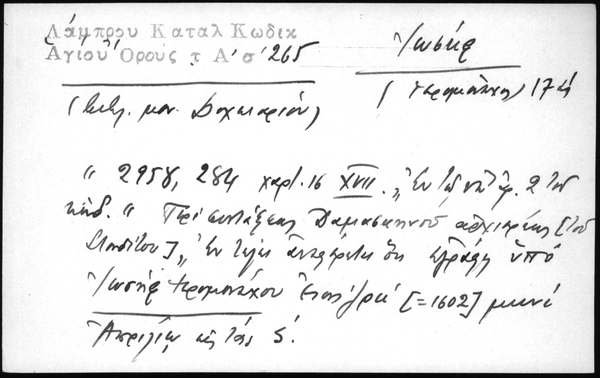 Λάμπρου Καταλ Κωδικ
Ἁγίου Ὄρους τ Α' σ' 265
Ἰωσὴφ
(Βιβλ. μον. Δοχειαρίου)
(Ἱερομόναχος) 17 αἰ
" 2958, 284 χαρτ. 16 XVII. „Ἐν τῷ ὑπ' ἀρ. 2 τοῦ
κώδ. " Περὶ συντάξεως Δαμασκηνοῦ ἀρχιερέως [τοῦ
Στουδίτου] „ Ἐν τέλει ἀναφέρεται ὅτι ἐγράφη ὑπὸ
Ἰωσὴφ ἱερομονάχου [=1602] μηνὶ
Ἀπριλίῳ εἰς τὰς 5.